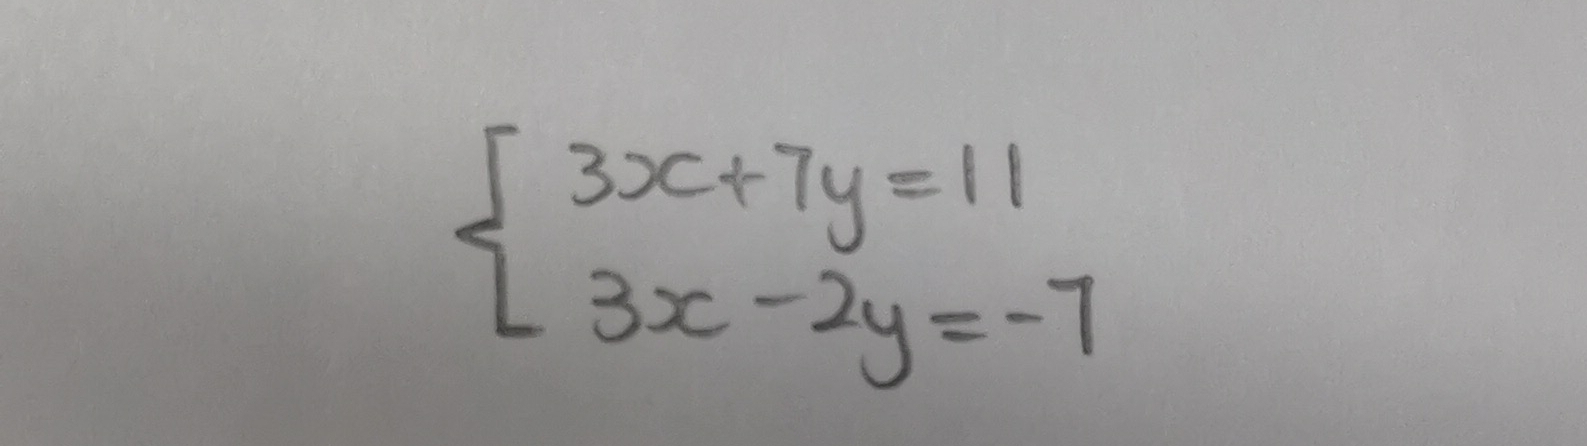 3x+7y=11
3x-2y=-7